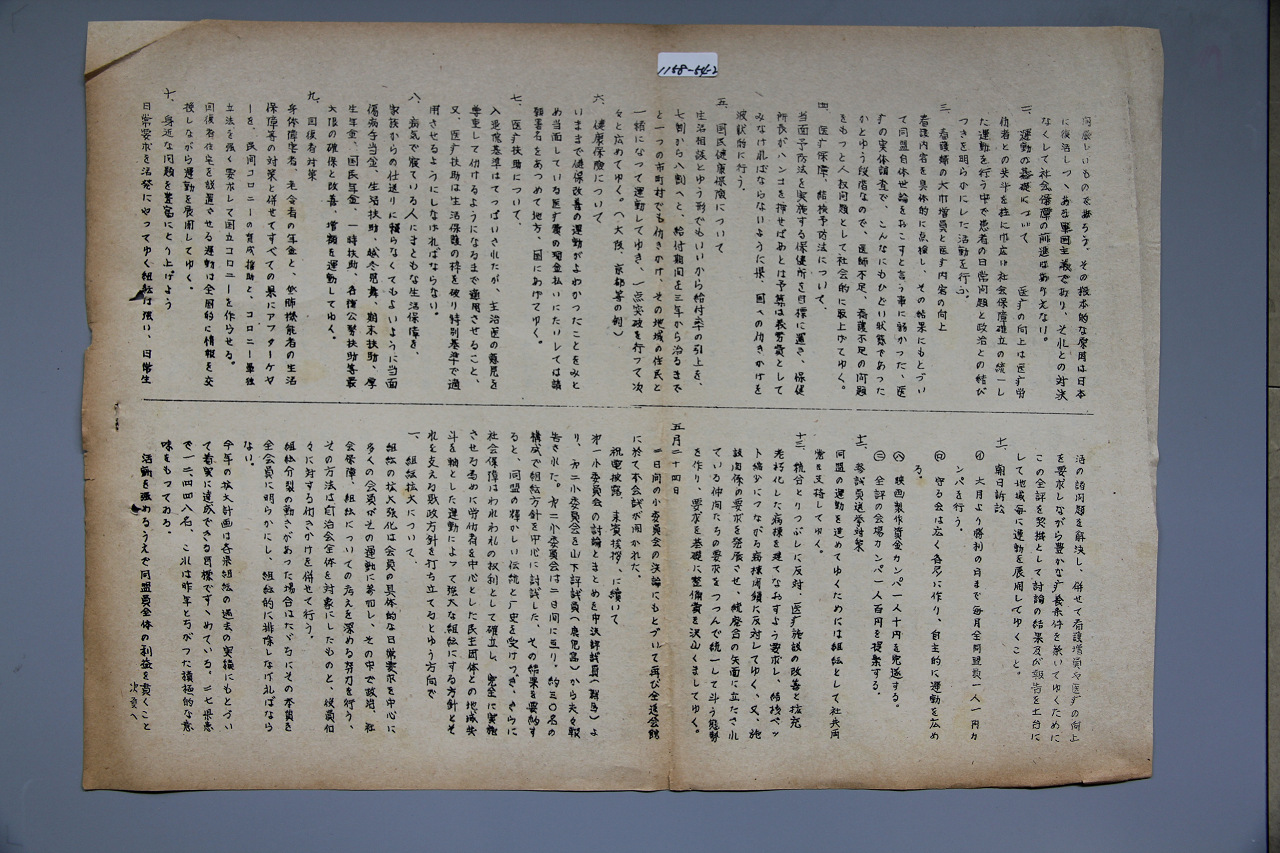 1158-54-2
に復活しつゝある軍国主義であり、それとの対決
なくして社会保障の前進はありえない。
二、運動の基礎について 医疗の向上は医疗労
仂者との共斗を柱に巾広い社会保障確立の統一し
た運動を行う中で患者の日常問題と政治との結び
つきを明らかにした活動を行う。
三、看護婦の大巾増員と医疗内容の向上
看護内容を具体的に点検し、その結果にもとづい
て同盟自体世論をおこすと言う事に弱かつた、医
疗の実体調査で、こんなにもひどい状態であった
かとゆう段階なので、医師不足、看護不足の問題
をもっと人权问題として社会的に取上げてゆく。
四、医疗保障、結核予防法について、
当面予防法を実施する保健所を目標に置き、保健
所長がハンコを押せばあとは予算は義务費として
みなければならないように県、国への仂きかけを
波状的に行う。
五、国民健康保険について
生活相談とゆう形でもいいから給付率の引上を、
七割から八割へと、給付期间を三年から治るまで
と一つの市町村でも仂きかけ、その地域の住民と
一緒になって運動してゆき、一点突破を行って次
々と広めてゆく。(大阪、京都等の例)
六、健康保険について
いままで健保改善の運動がよわかつたことをみと
め当面している医疗費の現金払いにたいしては請
願署名をあつめて地方、国にあげてゆく。
七、医疗扶助について、
入退院基準はてっぱいされたが、主治医の意見を
尊重して仂けるようになるまで適用させること、
又、医疗扶助は生活保護の枠を破り特別基準で適
用させるようにしなければならない。
八、病気で寝ている人にまともな生活保障を、
家族からの仕送りに頼らなくてもよいように当面
傷病手当金、生活扶助、越冬見舞、期末扶助、厚
生年金、国民年金、一時扶助、各種公務扶助等最
大限の確保と改善、増額を運動してゆく。
九、回復者対策
身体障害者、老令者の年金と、低肺機能者の生活
保障等の対策と併せてすべての県にアフターケヤ
ーを、民间コロニーの育成援助と、コロニー単独
立法を強く要求して国立コロニーを作らせる。
回復者住宅を設置させる運動は全国的に情報を交
換しながら運動を展開してゆく、
十、身近な问題を豊富にとり上げよう
日常要求を活発にやってゆく組織は強い、日常生
活の諸问題を解決し、併せて看護増員や医疗の向上
を要求しながら豊かな疗養条件を築いてゆくために
この全評を契機として討論の結果及び報告を土台に
して地域毎に運動を展開してゆくこと。
十一、朝日訴訟
(イ)六月より勝利の日まで毎月全同盟員一人一円カ
ンパを行う。
(ロ)守る会は広く各层に作り、自主的に運動を広め
る。
(ハ)映画製作資金カンパ一人十円を完遂する。
(ニ)全評の会場カンパ一人百円を提案する。
十二、参議員選挙対策
同盟の運動を進めてゆくためには組織として社共両
党を支持してゆく。
十三、統合とりつぶしに反対、医疗施設の改善と拡充
老朽化した病棟を建てなおすよう要求し、結核ベッ
ト縮少につながる病棟閉鎖に反対してゆく、又、施
設関係の要求を発展させ、統廃合の矢面に立たされ
ている仲间たちの要求をつつんで統一して斗う態勢
を作り、要求を基礎に整備費を沢山くましてゆく。
五月二十四日
二日间の小委員会の決論にもとづいて再び全逓会館
に於て本会議が开かれた。
祝電披露、来賓挨拶、に続いて
第一小委員会の討論とまとめを中沢評議員(群馬)よ
り、第二小委員会を山下評議員(鹿児島)から夫々報
告された。第二小委員会は二日间に亘り。約三〇名の
構成で組織方針を中心に討議した、その結果を要約す
ると、同盟の輝かしい伝統と厂史を受けつぎ、さらに
社会保障はわれわれの权利として確立し、完全に実施
させる為めに労仂者を中心とした民主団体との地域共
斗を軸とした運動によって強大な組織にする方針とそ
れを支える財政方針を打ち立てるとゆう方向で
一、組織拡大について、
組織の拡大強化は会員の具体的な日常要求を中心に
多くの会員がその運動に参加し、その中で政治、社
会保障、組織についての考えを深める努力を行う、
その方法は自治会全体を対象にしたものと、役員個
々に対する仂きかけを併せて行う。
組織分裂の動きがあった場合はただちにその本質を
全会員に明らかにし、組織的に排除しなければなら
ない。
今年の拡大計画は各県組織の過去の実績にもとづい
て着実に達成できる目標ですゝめている。二七県患
で一二、四四八名、これは昨年とちがつた積極的な意
味をもっている
活動を強めるうえで同盟員全体の利益を貫くこと
次頁へ